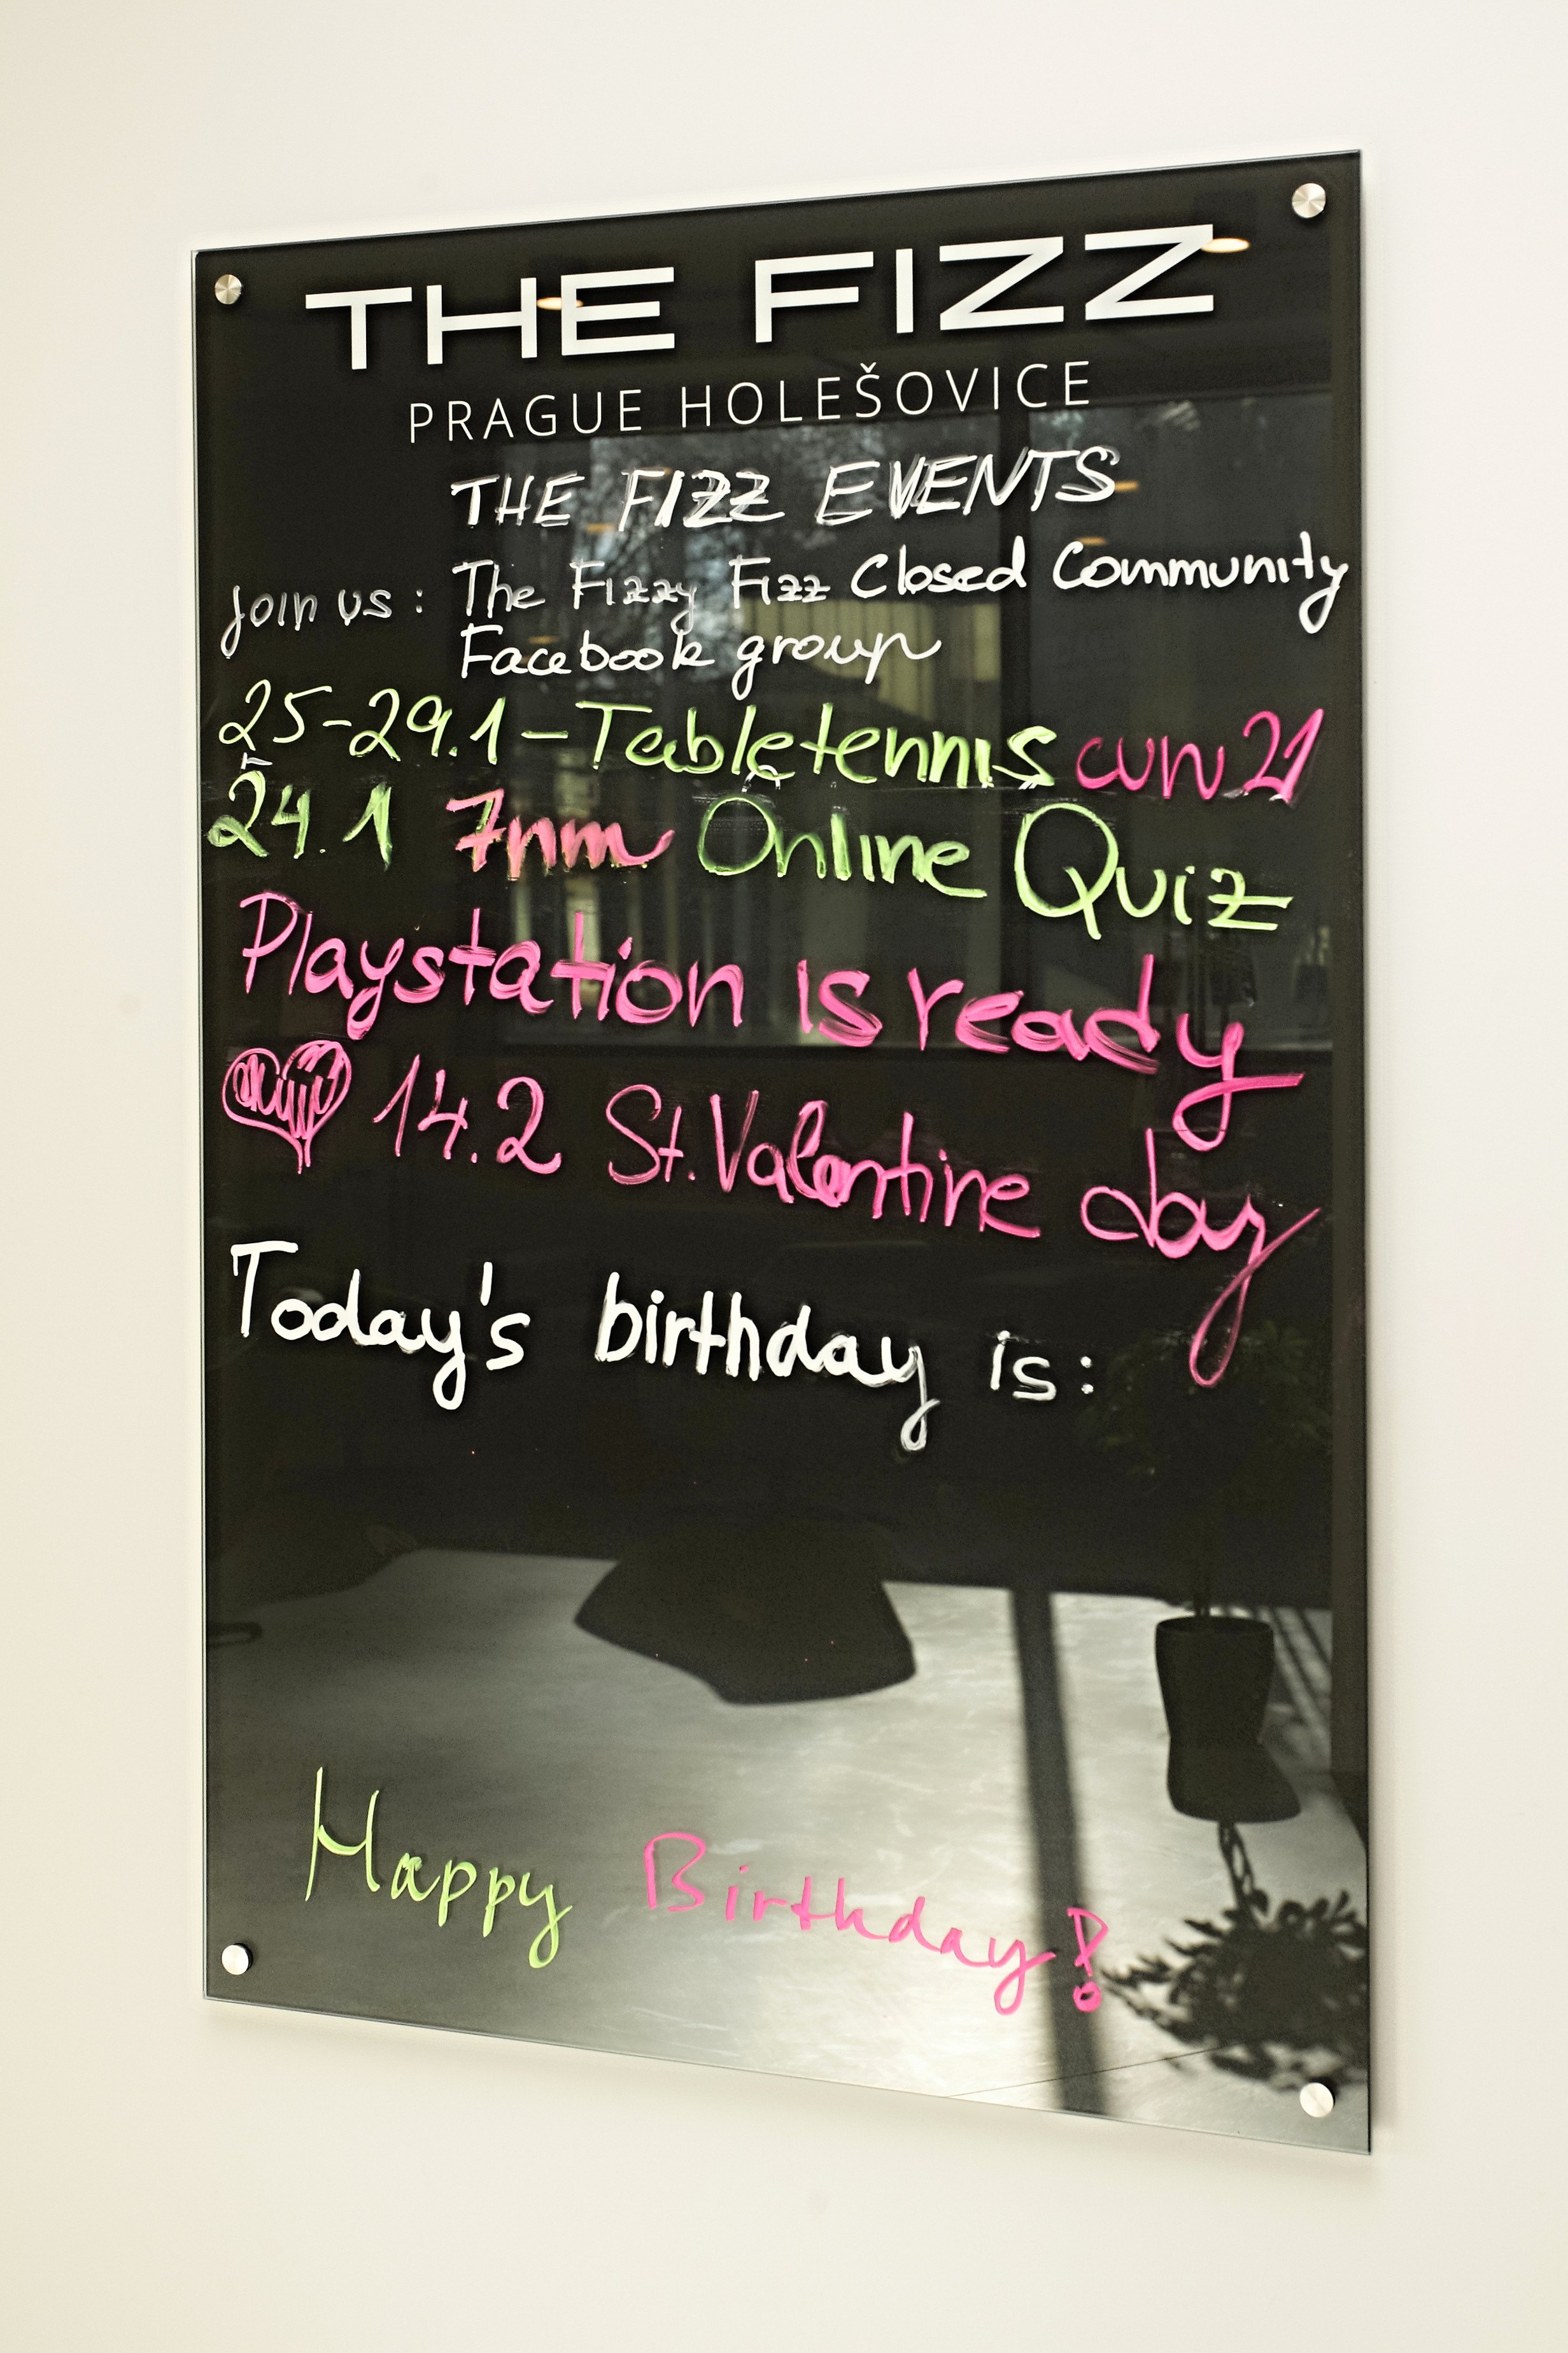 THE FIZZ
PRAGUE HOLEŠOVICE
THE FIZZ EVENTS
Join us: The Fizzy Fizz Closed Community
Facebook group
25-29.1-Tabletennis 21
24.1 Online Quiz
Playstation is ready
14.2 St. Valentine day
Today's birthday is:
Happy Birthday!